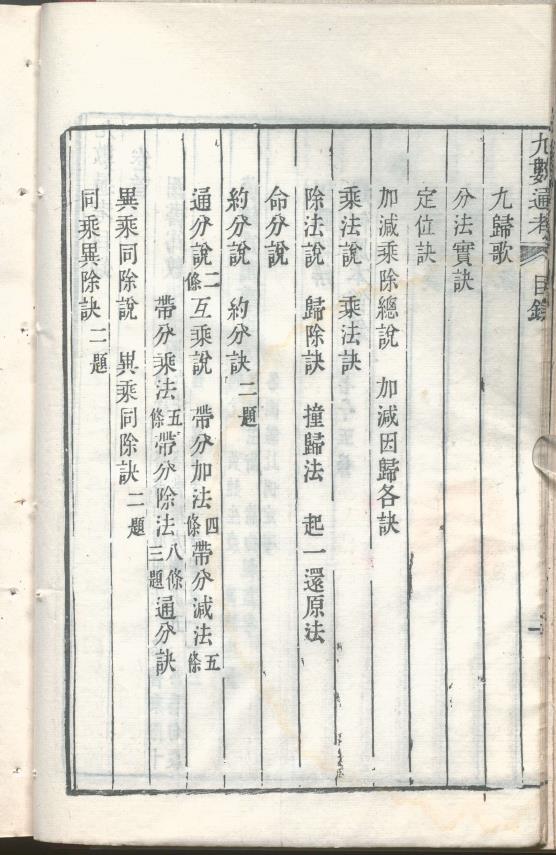 九數通考 目錄 一
九歸歌
分法實訣
定位訣
加減乘除總說 加減因歸各訣
乘法說 乘法訣
除法說 歸除訣 撞歸法 起一還原法
命分說
約分說 約分訣二題
通分說二條互乘說 帶分加法四條帶分減法五條
帶分乘法五條帶分除法八條三題通分訣
異乘同除說 異乘同除訣二題
同乘異除訣二題